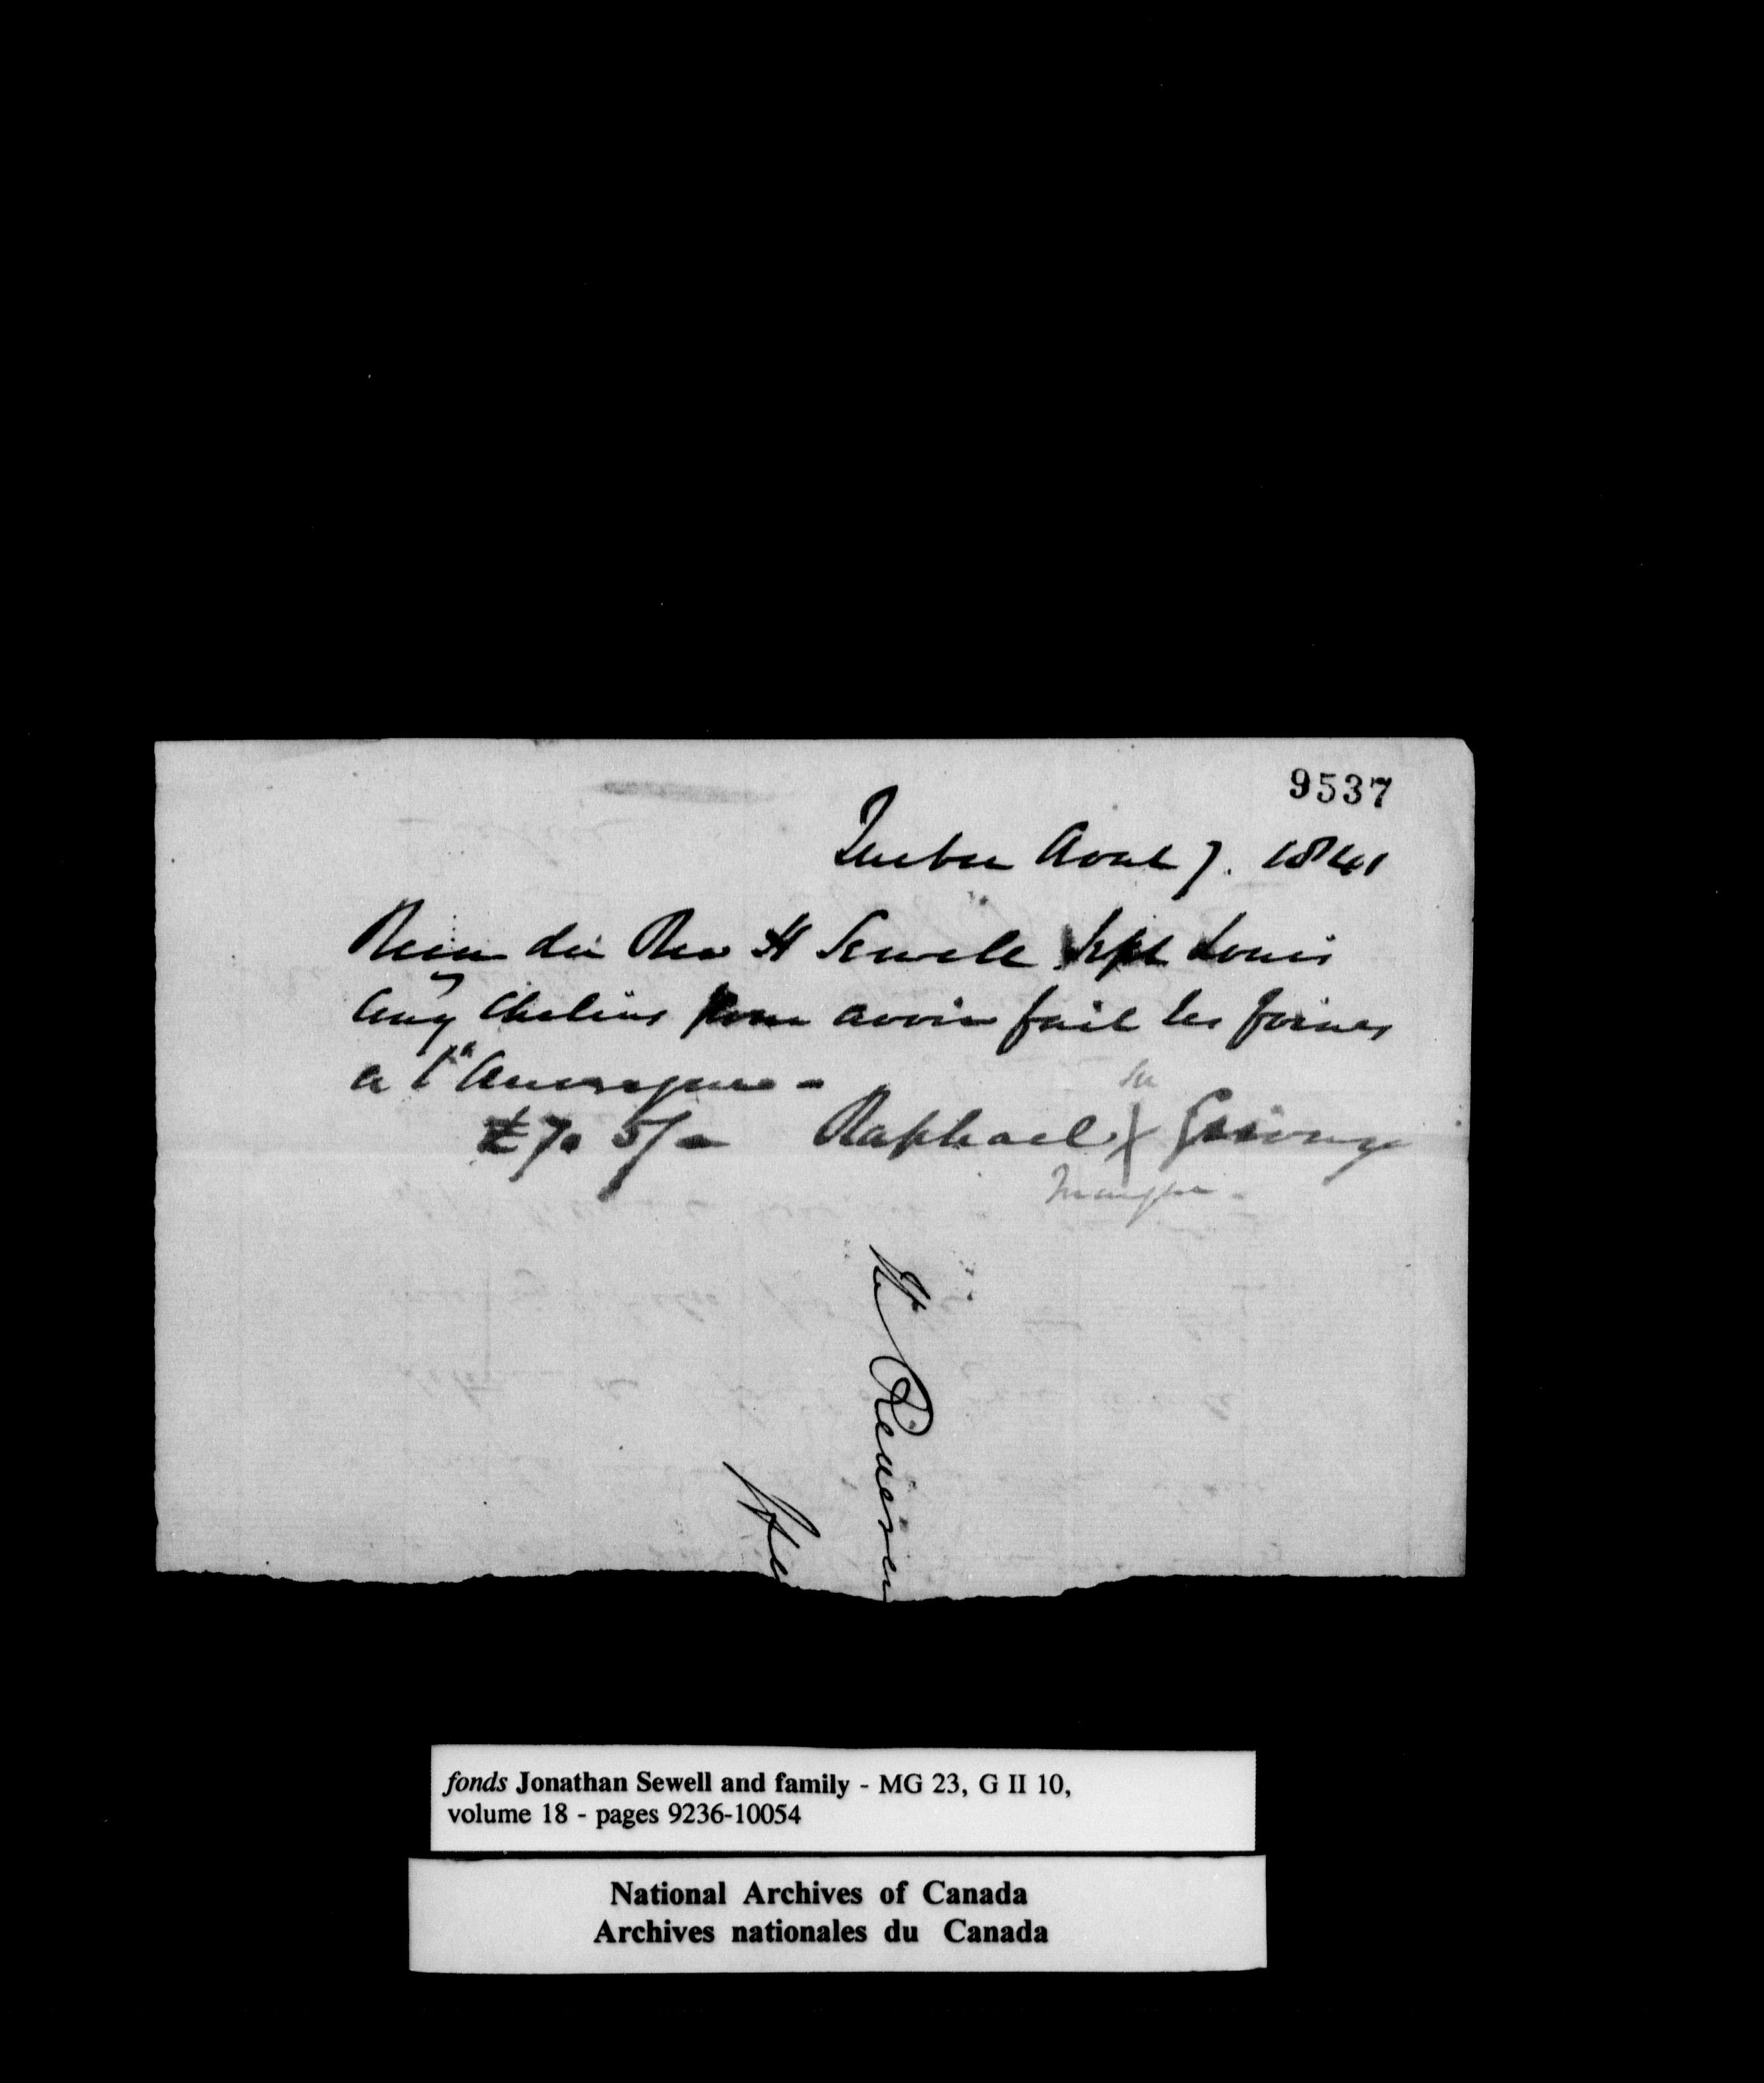 9537
Quebec Aout 7. 1841
Recu du Rev H Sewell Sept Louis
Cinq Chelins pour avoir fait les foines
a l'
£7 " 5/ - Raphael X Giroux
sa
marque -
H Reveren
fonds Jonathan Sewell and family - MG 23, G II 10,
volume 18 - pages 9236-10054
National Archives of Canada
Archives nationales du Canada